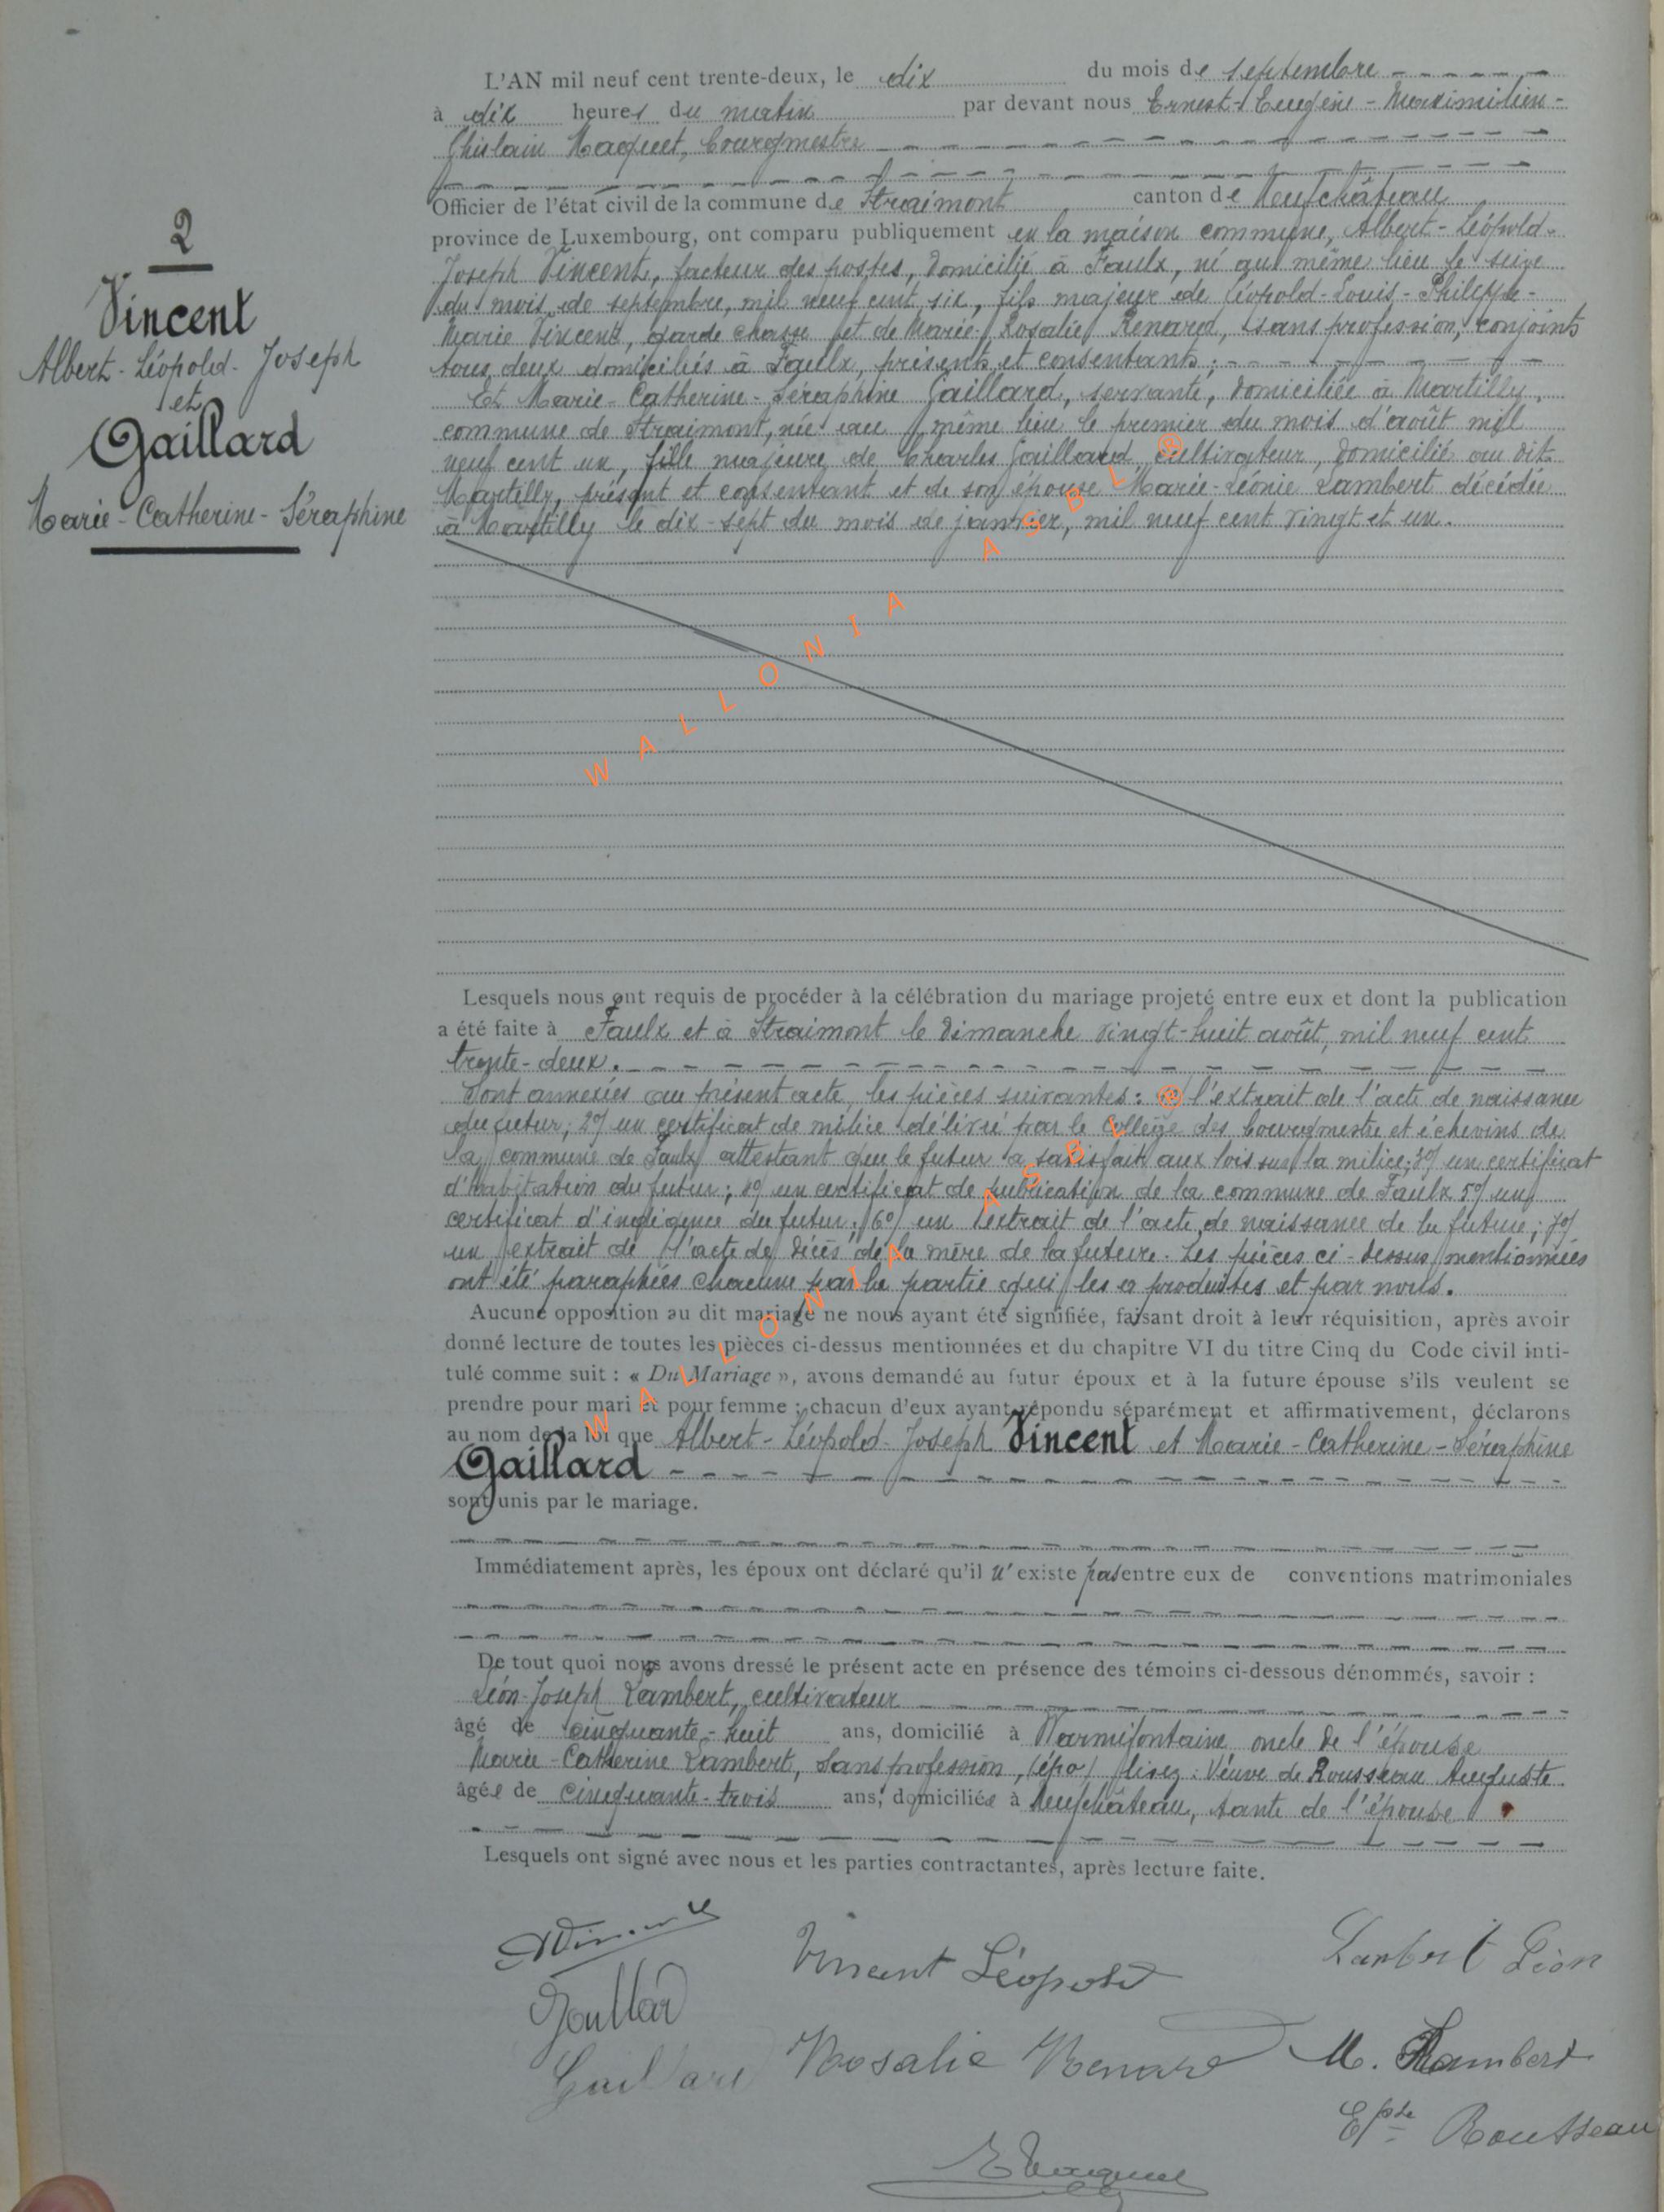 2
Vincent
Albert-Léopold-Joseph
et
Gaillard
Marie-Catherine-Séraphine
L'AN mil neuf cent trente-deux, le dix du mois de septembre
à dix heures du matin par devant nous Ernest-Eugène-Maximilien-
Ghislain Maquet, bourgmestre
Officier de l'état civil de la commune de Straimont canton de Neufchâteau
province de Luxembourg, ont comparu publiquement en la maison commune, Albert-Léopold-
Joseph Vincent, facteur des postes, domicilié à Faulx, né au même lieu le seize
du mois de septembre, mil neuf cent six, fils majeur de Léopold-Louis-Philippe-
Marie Vincent, garde chasse et de Marie-Rosalie Renard, sans profession, conjoints
tous deux domiciliés à Faulx, présents et consentants ;
Et Marie-Catherine-Séraphine Gaillard, servante, domiciliée à Martilly,
commune de Straimont, née au même lieu le premier du mois d'août mil
neuf cent un, fille majeure de Charles Gaillard, cultivateur, domicilié au dit
Martilly, présent et consentant et de son épouse Marie-Léonie Lambert décédée
à Martilly le dix-sept du mois de janvier, mil neuf cent vingt et un.
WALLONIA ASBL ®
Lesquels nous ont requis de procéder à la célébration du mariage projeté entre eux et dont la publication
a été faite à Faulx et à Straimont le dimanche vingt-huit août, mil neuf cent
trente-deux.
Sont annexées au présent acte, les pièces suivantes : l'extrait de l'acte de naissance
du futur; 2°/ un certificat de milice délivré par le Collège des bourgmestre et échevins de
la commune de Faulx attestant que le futur a satisfait aux lois sur la milice; 3°/ un certificat
d'habitation du futur; 4°/ un certificat de publication de la commune de Faulx 5°/ un
certificat d'indigence du futur. 6°/ un extrait de l'acte de naissance de la future; 7°/
un extrait de l'acte de décès de la mère de la future. Les pièces ci-dessus mentionnées
ont été paraphées chacune par la partie qui les a produites et par nous.
WALLONIA ASBL ®
Aucune opposition au dit mariage ne nous ayant été signifiée, faisant droit à leur réquisition, après avoir
donné lecture de toutes les pièces ci-dessus mentionnées et du chapitre VI du titre Cinq du Code civil inti-
tulé comme suit : « Du Mariage », avons demandé au futur époux et à la future épouse s'ils veulent se
prendre pour mari et pour femme ; chacun d'eux ayant répondu séparément et affirmativement, déclarons
au nom de la loi que Albert-Léopold-Joseph Vincent et Marie-Catherine-Séraphine
Gaillard
sont unis par le mariage.
Immédiatement après, les époux ont déclaré qu'il n'existe pas entre eux de conventions matrimoniales
De tout quoi nous avons dressé le présent acte en présence des témoins ci-dessous dénommés, savoir :
Léon-Joseph Lambert, cultivateur
âgé de cinquante-huit ans, domicilié à Warmifontaine oncle de l'épouse
Marie-Catherine Lambert, sans profession, (épo) lisez : Veuve de Rousseau Auguste
âgée de cinquante-trois ans, domiciliée à Neufchâteau, tante de l'épouse
Lesquels ont signé avec nous et les parties contractantes, après lecture faite.
Vincent Léopold Lambert Léon
Gaillard
Gaillard Rosalie Renard M. Lambert
Epse Rousseau
E Maquet